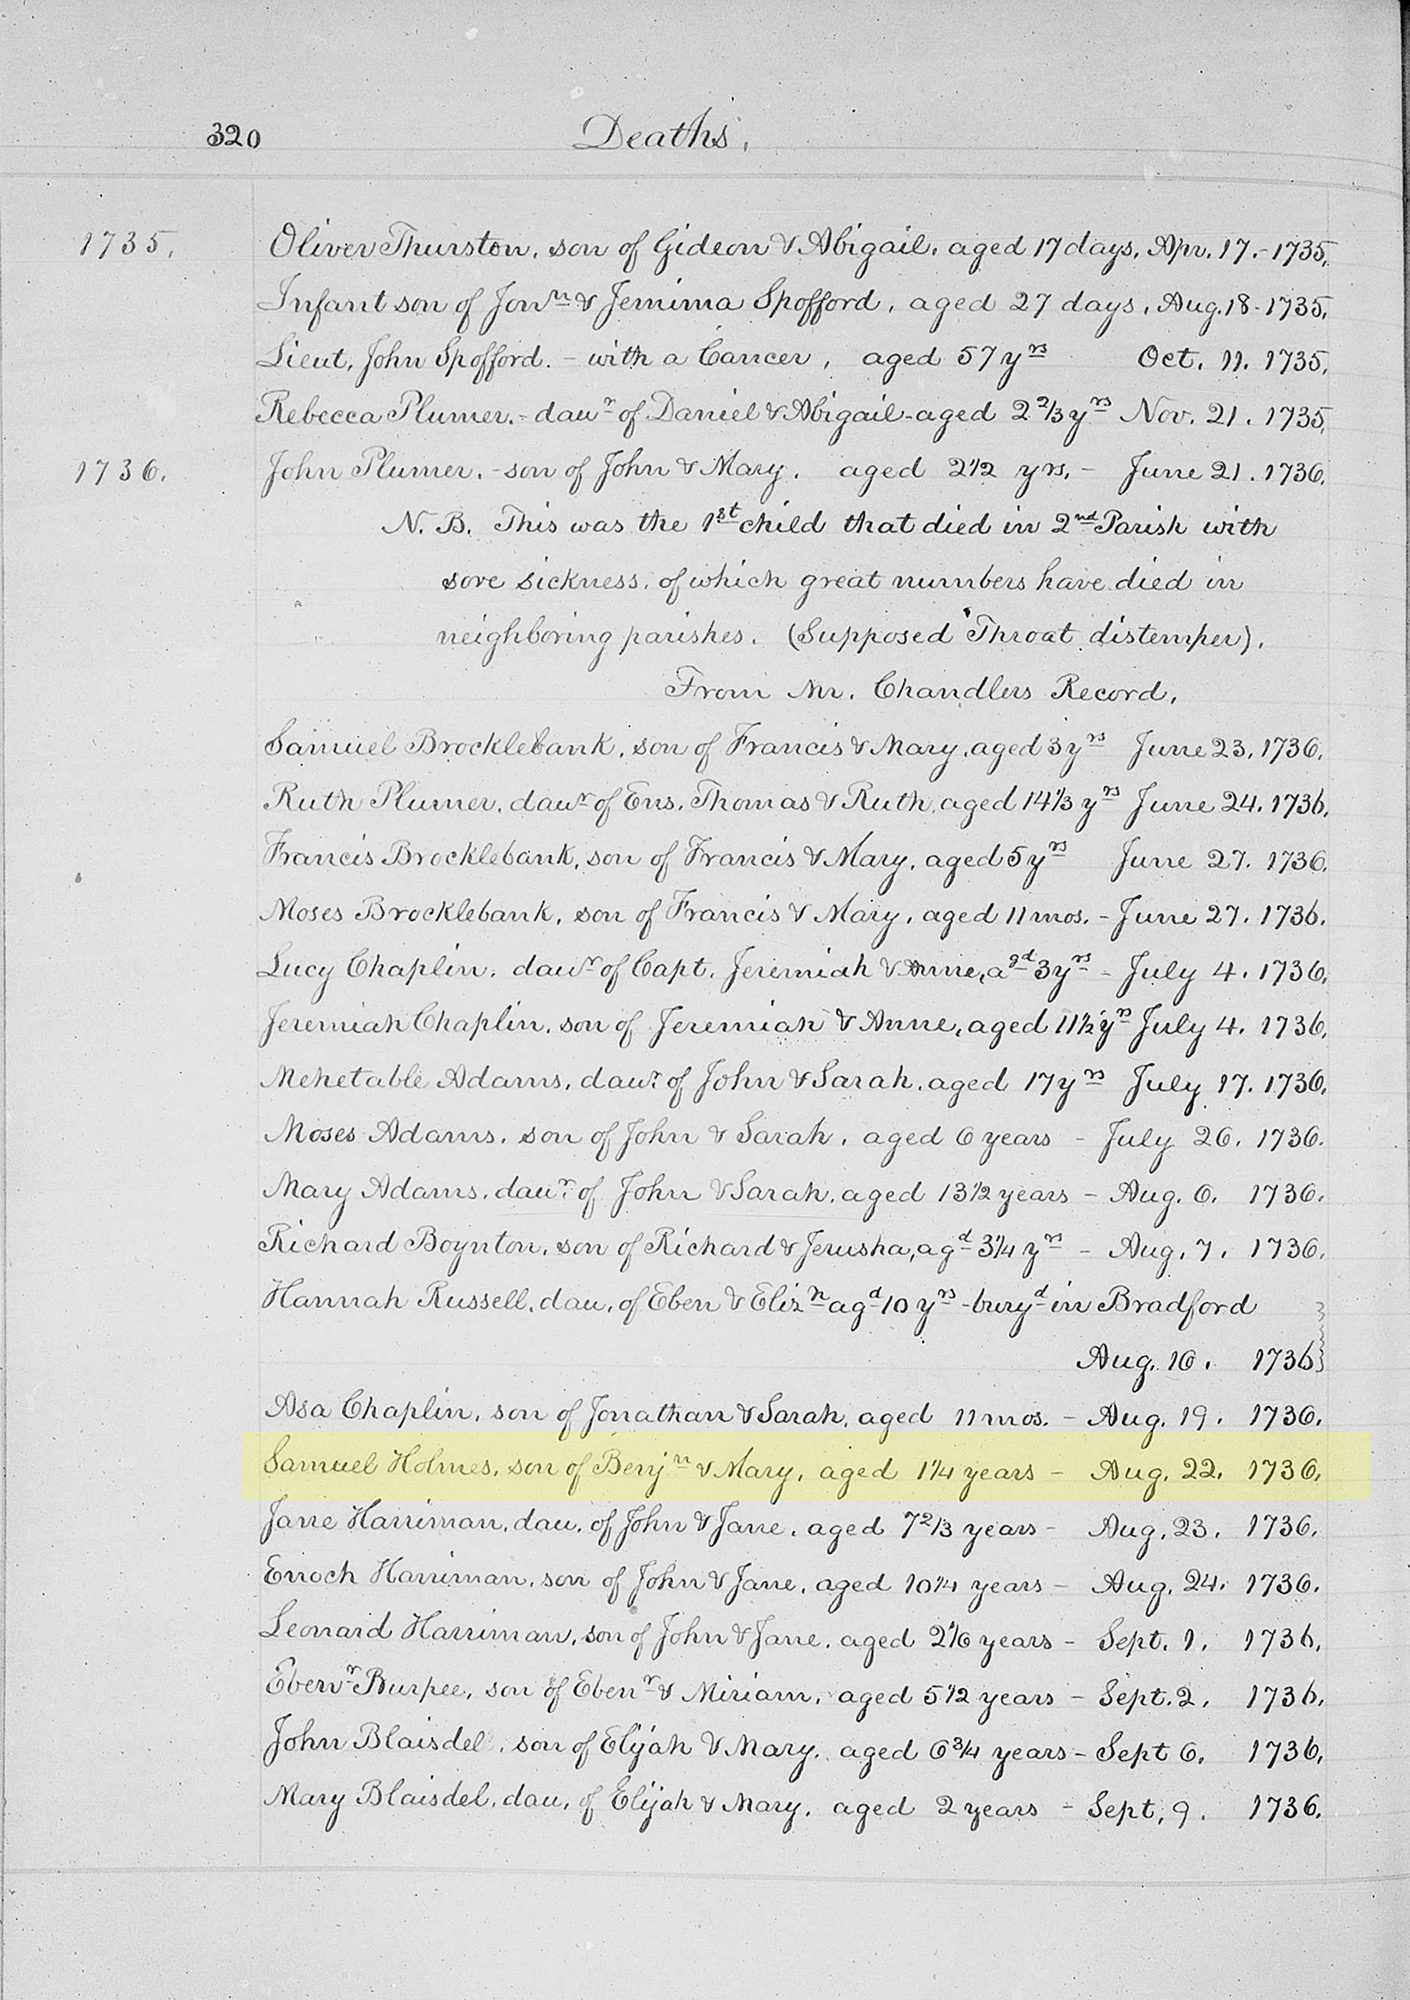 320 Deaths.
1735. Oliver Thurston, son of Gideon & Abigail, aged 17 days, Apr. 17. - 1735.
Infant son of Jonn & Jemima Spofford, aged 27 days, Aug. 18 - 1735.
Lieut. John Spofford. - with a Cancer, aged 57 yrs Oct. 11. 1735.
Rebecca Plumer. - daur of Daniel & Abigail - aged 2 2/3 yrs Nov. 21. 1735.
1736. John Plumer. - son of John & Mary. aged 2 1/2 yrs. - June 21. 1736.
N. B. This was the 1st child that died in 2nd Parish with
sore sickness, of which great numbers have died in
neighboring parishes. (Supposed Throat distemper).
From Mr. Chandlers Record.
Samuel Brocklebank, son of Francis & Mary, aged 3 yrs June 23. 1736.
Ruth Plumer, daur of Ens. Thomas & Ruth, aged 14 1/3 yrs June 24. 1736.
Francis Brocklebank, son of Francis & Mary, aged 5 yrs June 27. 1736.
Moses Brocklebank, son of Francis & Mary, aged 11 mos. - June 27. 1736.
Lucy Chaplin, daur of Capt. Jeremiah & Anne, agd 3 yrs - July 4. 1736.
Jeremiah Chaplin, son of Jeremiah & Anne, aged 11 1/2 yrs July 4. 1736.
Mehetable Adams, daur of John & Sarah, aged 17 yrs July 17. 1736.
Moses Adams, son of John & Sarah, aged 6 years - July 26. 1736.
Mary Adams, daur of John & Sarah, aged 13 1/2 years - Aug. 6. 1736.
Richard Boynton, son of Richard & Jerusha, agd 3 1/4 yrs - Aug. 7. 1736.
Hannah Russell, dau. of Eben & Elizh agd 10 yrs - buryd in Bradford
Aug. 16. 1736
Asa Chaplin, son of Jonathan & Sarah, aged 11 mos. - Aug. 19. 1736.
Samuel Holmes, son of Benjn & Mary, aged 1 1/4 years - Aug. 22. 1736.
Jane Harriman, dau. of John & Jane, aged 7 2/3 years - Aug. 23. 1736.
Enoch Harriman, son of John & Jane, aged 10 1/4 years - Aug. 24. 1736.
Leonard Harriman, son of John & Jane, aged 2 1/6 years - Sept. 1. 1736.
Ebenr Burpee, son of Ebenr & Miriam, aged 5 1/2 years - Sept. 2. 1736.
John Blaisdel, son of Elijah & Mary, aged 6 3/4 years - Sept 6. 1736.
Mary Blaisdel, dau. of Elijah & Mary, aged 2 years - Sept. 9. 1736.